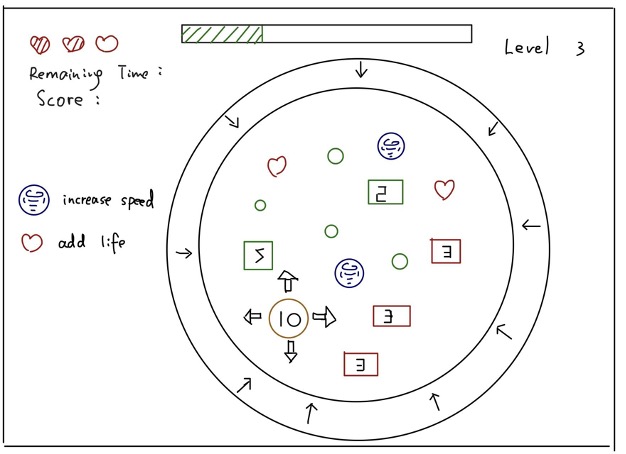 Level 3
Remaining Time :
Score :
2
increase speed
add life
5
3
10
3
3